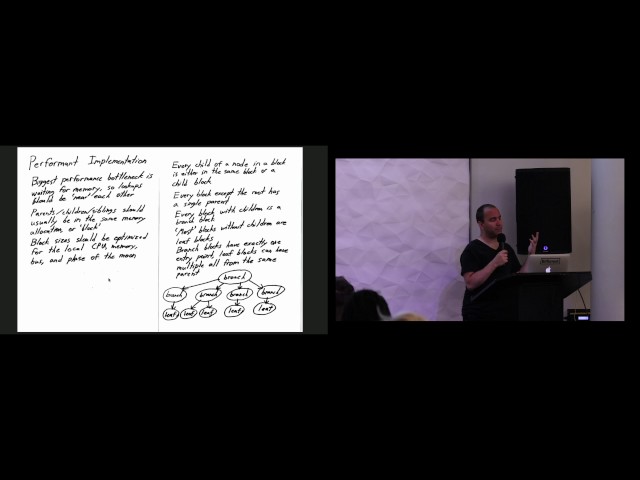 Performant Implementation
Biggest performance bottleneck is
waiting for memory, so lookups
should be 'near' each other
Parents/children/siblings should
usually be in the same memory
allocation, or 'block'
Block sizes should be optimized
for the local CPU, memory,
bus, and phase of the moon
Every child of a node in a block
is either in the same block or a
child block
Every block except the root has
a single parent
Every block with children is a
branch block
'Most' blocks without children are
leaf blocks
Branch blocks have exactly one
entry point, leaf blocks can have
multiple all from the same
parent
branch
branch branch branch branch
leaf leaf leaf leaf leaf